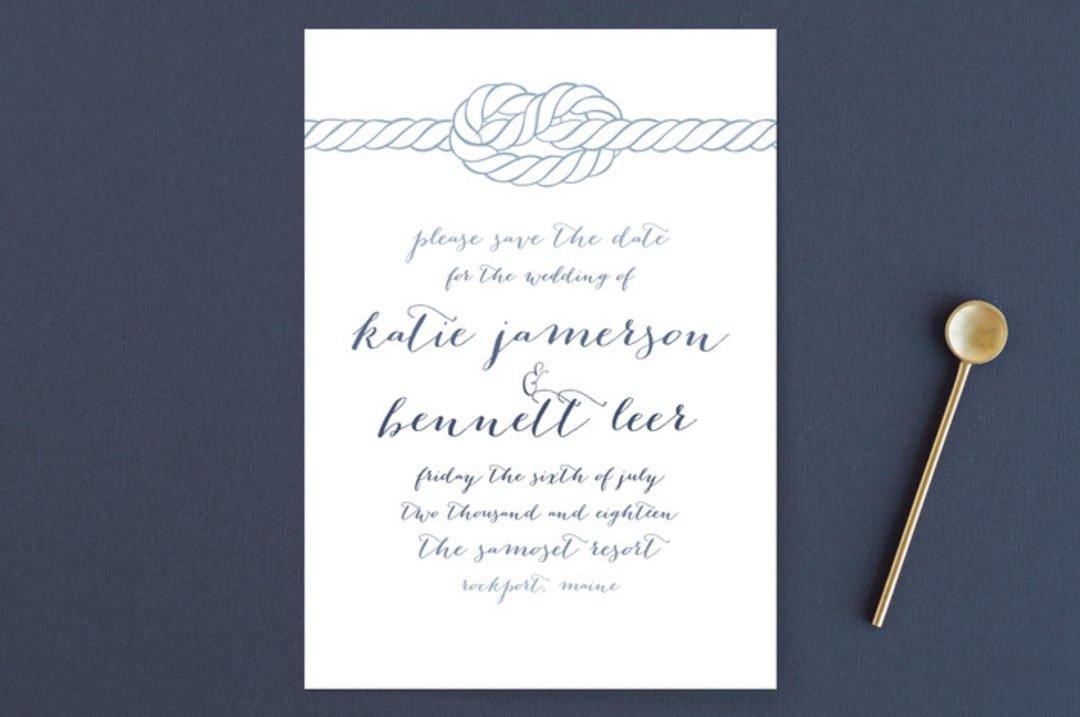 please save the date
for the wedding of
katie jamerson
&
bennett leer
friday the sixth of july
two thousand and eighteen
the samoset resort
rockport, maine